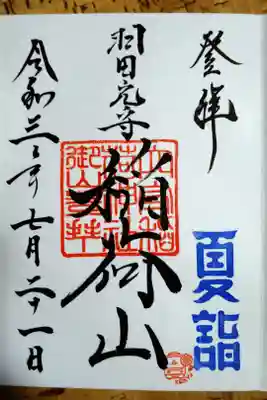 登拝
夏詣
羽田穴守
稲荷山
令和三年七月二十一日